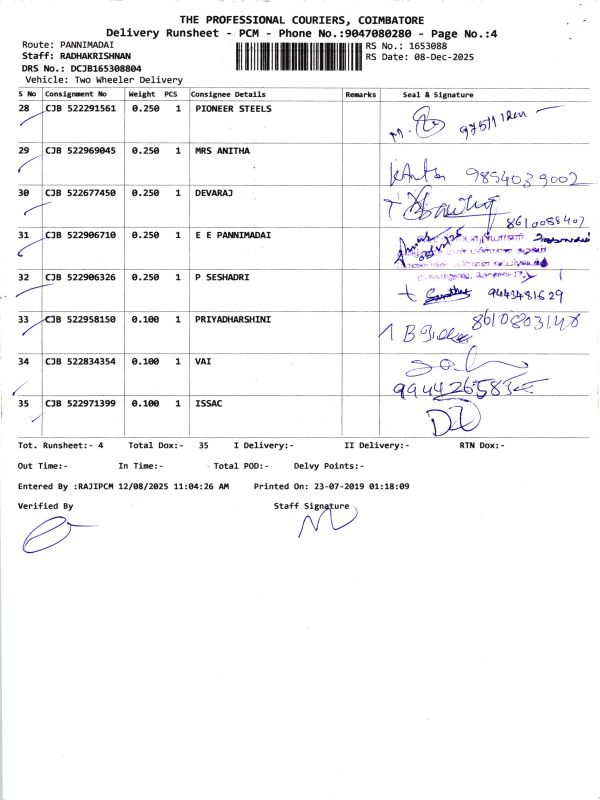 THE PROFESSIONAL COURIERS, COIMBATORE
Delivery Runsheet - PCM - Phone No.:9047080280 - Page No.:4
Route: PANNIMADAI
RS No.: 1653088
Staff: RADHAKRISHNAN
RS Date: 08-Dec-2025
DRS No.: DCJB165308804
Vehicle: Two Wheeler Delivery
S No Consignment No Weight PCS Consignee Details Remarks Seal & Signature
28 CJB 522291561 0.250 1 PIONEER STEELS
29 CJB 522969045 0.250 1 MRS ANITHA 9894039002
30 CJB 522677450 0.250 1 DEVARAJ
8610058407
31 CJB 522906710 0.250 1 E E PANNIMADAI
32 CJB 522906326 0.250 1 P SESHADRI
9443481629
33 CJB 522958150 0.100 1 PRIYADHARSHINI 8610803148
34 CJB 522834354 0.100 1 VAI
35 CJB 522971399 0.100 1 ISSAC
Tot. Runsheet:- 4 Total Dox:- 35 I Delivery:- II Delivery:- RTN Dox:-
Out Time:- In Time:- Total POD:- Delvy Points:-
Entered By :RAJIPCM 12/08/2025 11:04:26 AM Printed On: 23-07-2019 01:18:09
Verified By Staff Signature